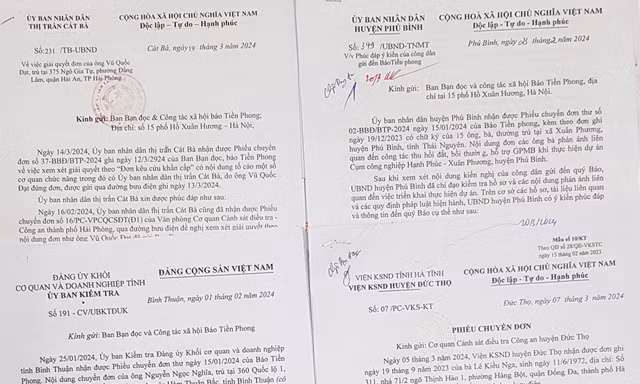 ỦY BAN NHÂN DÂN
THỊ TRẤN CÁT BÀ
CỘNG HÒA XÃ HỘI CHỦ NGHĨA VIỆT NAM
Độc lập – Tự do – Hạnh phúc
Số: 231 /TB-UBND
Cát Bà, ngày 19 tháng 3 năm 2024
Về việc giải quyết đơn của ông Vũ Quốc
Đạt, trú tại 375 Ngô Gia Tự, phường Đằng
Lâm, quận Hải An, TP Hải Phòng.
Kính gửi: Ban Bạn đọc & Công tác xã hội báo Tiền Phong;
Địa chỉ: số 15 phố Hồ Xuân Hương – Hà Nội;
Ngày 14/3/2024, Ủy ban nhân dân thị trấn Cát Bà nhận được Phiếu chuyển
đơn số 37-BBĐ/BTP-2024 ghi ngày 12/3/2924 của Ban Bạn đọc, báo Tiền Phong
về việc xét giải quyết theo "Đơn kêu cứu khẩn cấp" có nội dung tố cáo một số
cơ quan chức năng trong đó có Ủy ban nhân dân thị trấn Cát Bà, do ông Vũ Quốc
Đạt đứng đơn, được gửi qua đường bưu điện ghi ngày 13/3/2024.
Ủy ban nhân dân thị trấn Cát Bà xin được phúc đáp như sau:
Ngày 16/02/2024, Ủy ban nhân dân thị trấn Cát Bà cũng đã nhận được Phiếu
chuyển đơn số 16/PC-VPCQCSĐT(Đ1) của Văn phòng Cơ quan Cảnh sát điều tra -
Công an thành phố Hải Phòng, qua đường bưu điện đề nghị xem xét giải quyết theo
nội dung đơn như ông Vũ Quốc
ỦY BAN NHÂN DÂN
HUYỆN PHÚ BÌNH
CỘNG HOÀ XÃ HỘI CHỦ NGHĨA VIỆT NAM
Độc lập - Tự do - Hạnh phúc
Số: 349 /UBND-TNMT
V/v Phúc đáp ý kiến của công dân
gửi đến BáoTiền phong
Phú Bình, ngày 28 tháng 2 năm 2024
Kính gửi: Ban Bạn đọc và công tác xã hội báo Tiền Phong, địa
chỉ tại 15 phố Hồ Xuân Hương, Hà Nội.
Ủy ban nhân dân huyện Phú Bình nhận được Phiếu chuyển đơn thư số
02-BBĐ/BTP-2024 ngày 15/01/2024 của Báo Tiền phong, kèm theo đơn ghi
ngày 19/12/2023 có chữ ký của 15 ông, bà, thường trú tại xã Xuân Phương,
huyện Phú Bình, tỉnh Thái Nguyên. Nội dung đơn các ông bà phản ánh liên
quan đến công tác thu hồi đất, bồi thường, hỗ trợ GPMB khi thực hiện dự án
Cụm công nghiệp Hạnh Phúc - Xuân Phương, huyện Phú Bình.
Sau khi xem xét nội dung kiến nghị của công dân gửi đến quý Báo,
UBND huyện Phú Bình đã chỉ đạo kiểm tra hồ sơ và các nội dung phản ánh liên
quan đến việc triển khai thực hiện dự án. Trên cơ sở các hồ sơ, tài liệu liên quan
và các quy định pháp luật hiện hành, UBND huyện Phú Bình có ý kiến phúc đáp
và thông tin đến Quý Báo cụ thể như sau:
ĐẢNG ỦY KHỐI
CƠ QUAN VÀ DOANH NGHIỆP TỈNH
ỦY BAN KIỂM TRA
ĐẢNG CỘNG SẢN VIỆT NAM
Số 191 - CV/UBKTĐUK
Bình Thuận, ngày 01 tháng 02 năm 2024
Kính gửi: Ban Bạn đọc và Công tác xã hội báo Tiền Phong
Ngày 25/01/2024, Ủy ban Kiểm tra Đảng ủy Khối cơ quan và doanh nghiệp
tỉnh Bình Thuận nhận được Phiếu chuyển đơn thư ngày 15/01/2024 của Báo Tiền
Phong. Nội dung đơn của ông Nguyễn Ngọc Nghĩa, trú tại 360 Quốc lộ 1,
Hàm Thuận Bắc, tỉnh Bình Thuận (có
Mẫu số 10/KT
Theo QĐ số 28/QĐ-VKSTC
ngày 15 tháng 02 năm 2023
VIỆN KSND TỈNH HÀ TĨNH
VIỆN KSND HUYỆN ĐỨC THỌ
CỘNG HOÀ XÃ HỘI CHỦ NGHĨA VIỆT NAM
Độc lập - Tự do - Hạnh phúc
Số: 07 /PC-VKS-KT
Đức Thọ, ngày 07 tháng 3 năm 2024
PHIẾU CHUYỂN ĐƠN
Kính gửi: Cơ quan Cảnh sát điều tra Công an huyện Đức Thọ
Ngày 05 tháng 3 năm 2024, Viện KSND huyện Đức Thọ nhận được đơn ghi
ngày 19 tháng 9 năm 2023 của bà Lê Kiều Nga, sinh ngày 11/6/1972, địa chỉ: Số
311, nhà 71/2 ngõ Thịnh Hào 1, phường Hàng Bột, quận Đống Đa, thành phố Hà